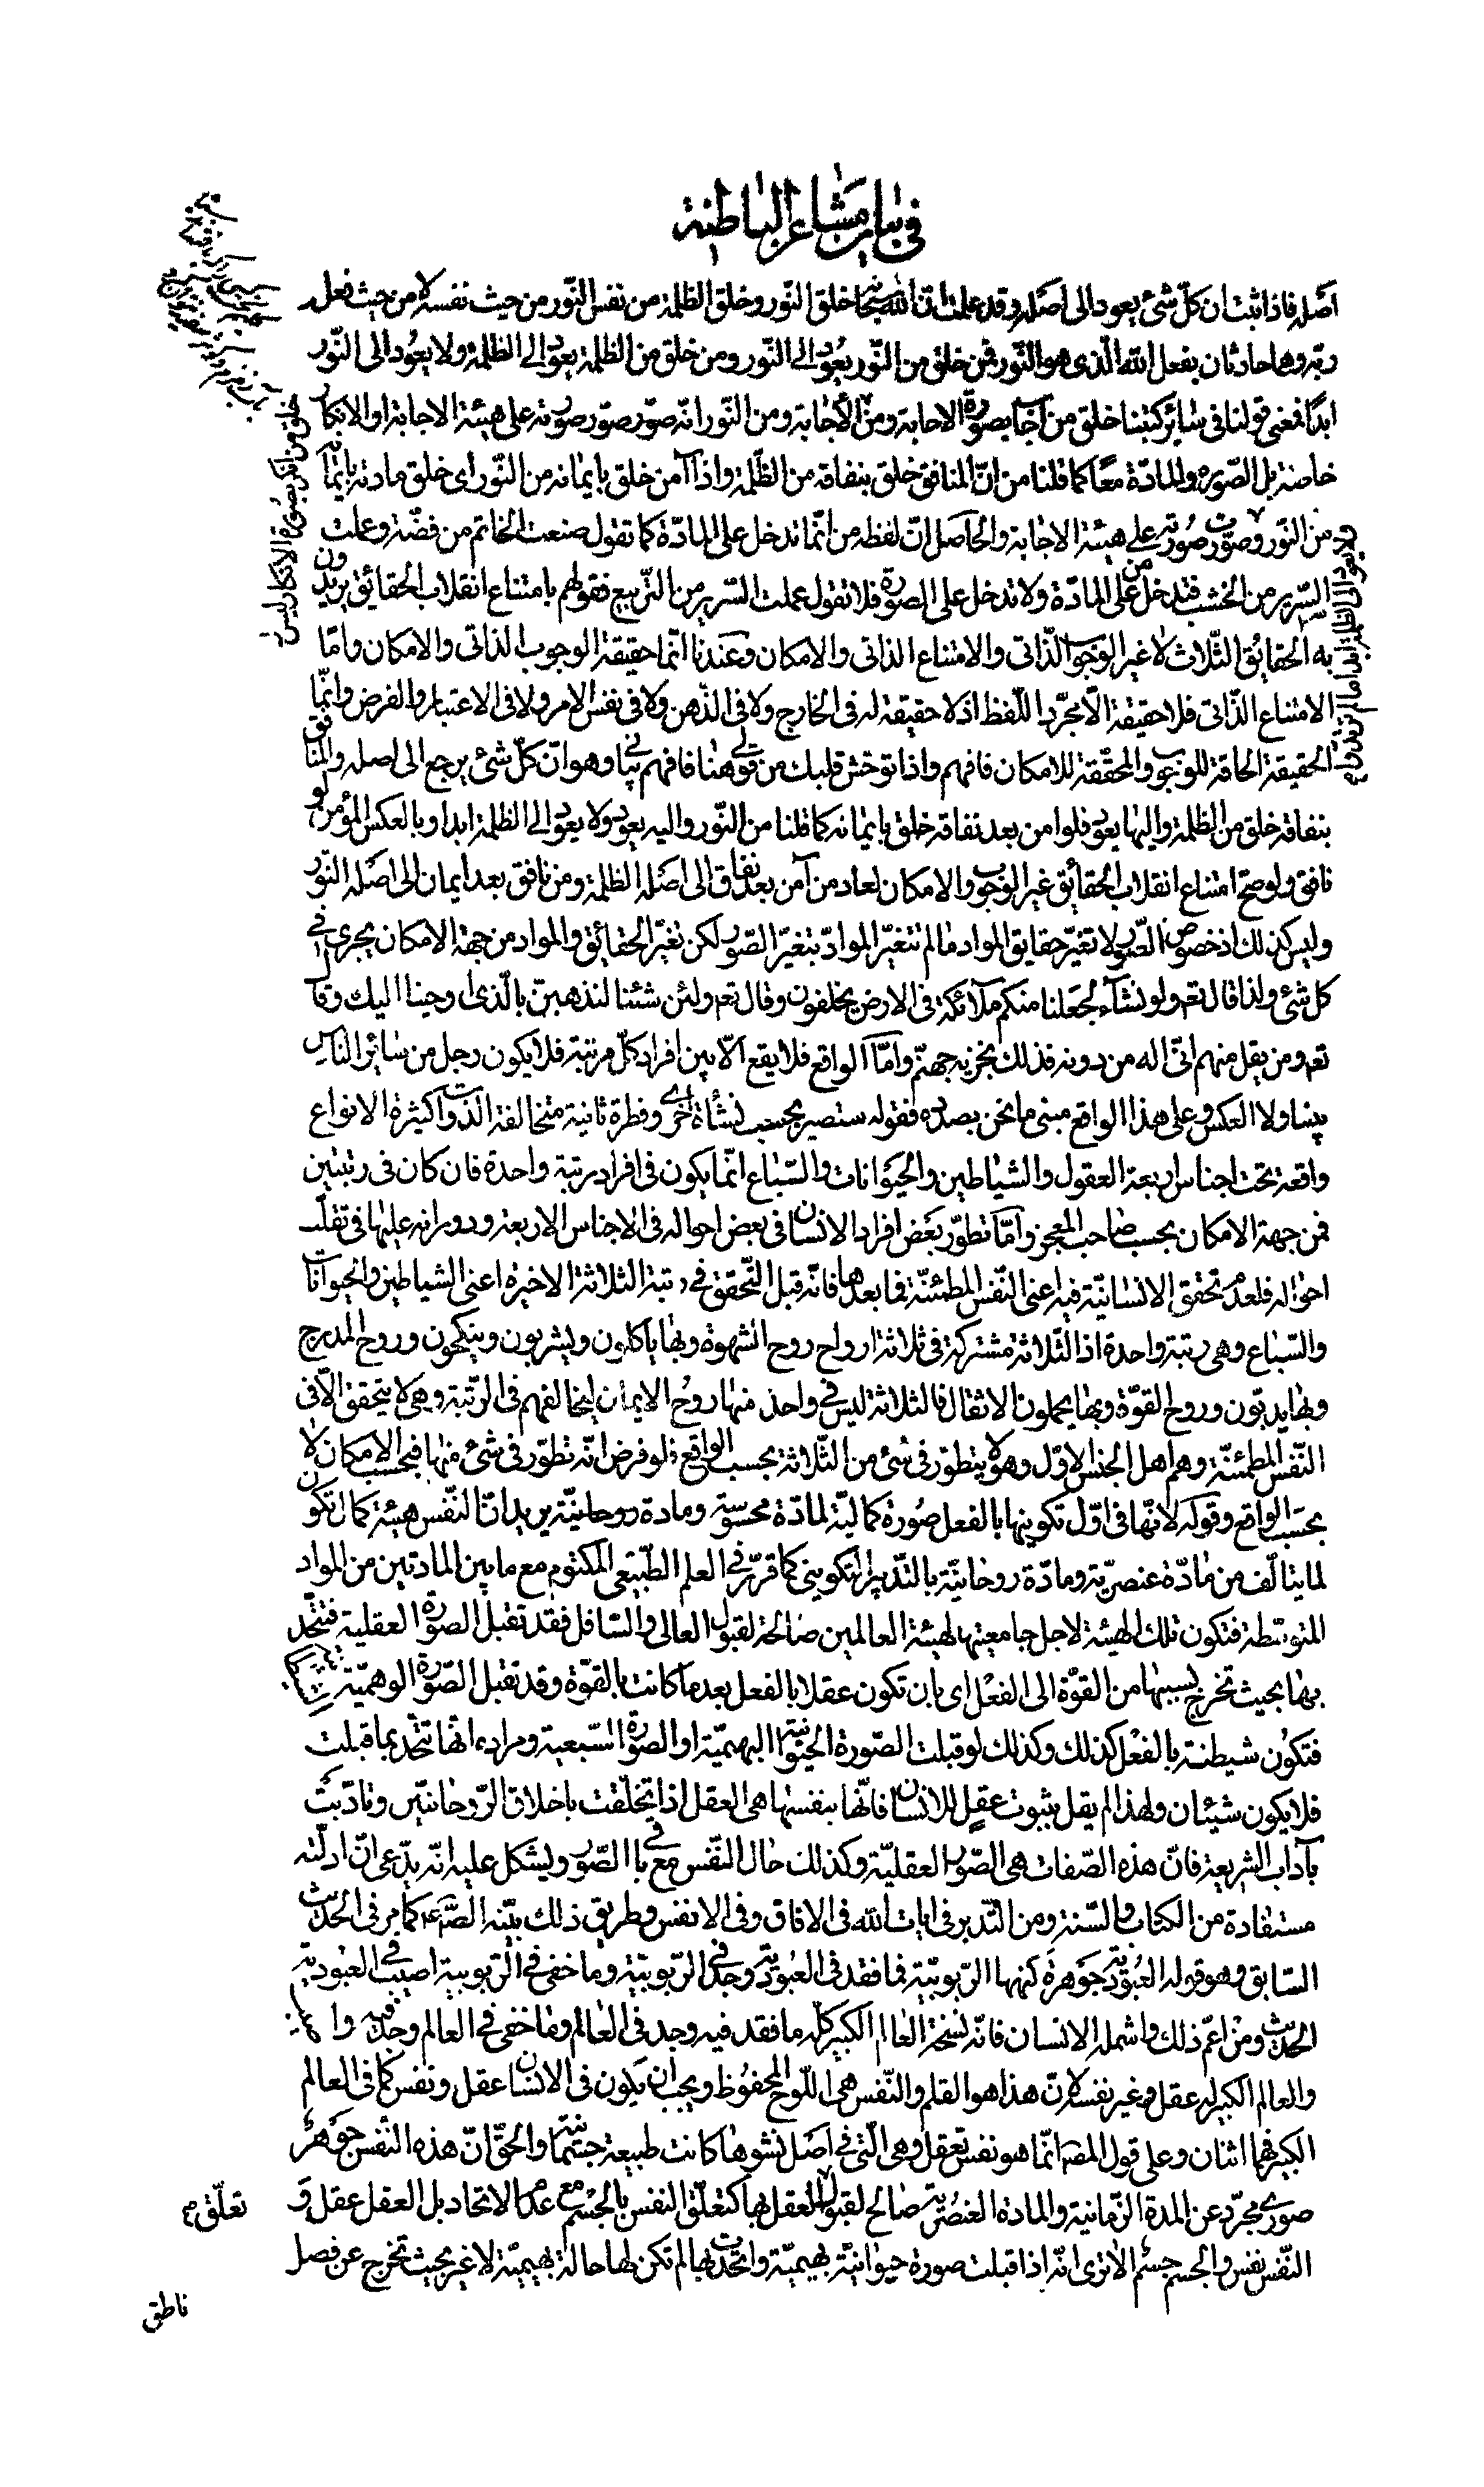 في بيان مشاعر الباطنة
اصله فاذا ثبت ان كلّ شئ يعود الى اصله وقد علمت انّ الله سبحانه خلق النّور وخلق الظلمة من نفس النّور من حيث نفسه لا من حيث فعل
ربّه وهما حادثان بفعل الله الّذى هو النّور فمن خلق من النّور يعُود الى النّور ومن خلق من الظلمة يعود الى الظلمة ولا يعُود الى النّور
ابدًا فمعنى قولنا فى سائر كتبنا خلق من اجاب بصورة الاجابة ومن الأجابة ومن النّور انّه صوّر صوّر صورته على هيئة الاجابة او الانكار
خاصّة بل الصّورة والمادّة معًا كما قلنا من انّ المنافق خلق بنفاقه من الظّلمة واذا آمن خلق بايمانه من النّور اى خلق مادته بايمانه
من النّور وصوّرت صُورته على هيئة الاجابة والحاصل انّ لفظه من انّما تدخل على المادّة كما تقول صنعت الخاتم من فضّة وعملت
السّرير من الخشب فتدخل من على المادّة ولا تدخل على الصورة فلا تقول عملت السّرير من التّربيع فقولهم بامتناع انقلاب الحقائق يريدون
به الحقايُق الثّلاث لا غير الوجوب الذّاتى والامتناع الذاتى والامكان وعندنا انّما حقيقة الوجوب الذاتى والامكان وامّا
الامتناع الذّاتى فلا حقيقة الّا مجرّد اللّفظ اذ لا حقيقة له فى الخارج ولا فى الذّهن ولا فى نفس الامر ولا فى الاعتبار والفرض وانّما
الحقيقة الحاقة للوجوب والمحقّقة للامكان فافهم واذا توحّش قلبك من قولى هنا فافهم بيانى وهو انّ كلّ شئ يرجع الى اصله والمنافق
بنفاقه خلق من الظلمة واليها يعود فلو امن بعد نفاقه خلق بايمانه كما قلنا من النّور واليه يعود ولا يعود الى الظلمة ابدا وبالعكس المؤمن لو
نافق ولو صحّ امتناع انقلاب الحقائق غير الوجوب والامكان لعاد من آمن بعد نفاق الى اصله الظلمة ومن نافق بعد ايمان الى اصله النّور
وليس كذلك اذ خصوص الصّور لا تغيّر حقايق المواد ما لم تتغيّر الموادّ بتغيّر الصّور لكن تغيّر الحقائق والمواد من جهة الامكان يجرى فى
كل شئ ولذا قال تعم ولو نشآء لجعلنا منكم ملآئكة فى الارض يخلفون وقال تعم ولئن شئنا لنذهبنّ بالّذى اوحينا اليك وقال
تعم ومن يقل منهم انّى اله من دونه فذلك نجزيه جهنّم وامّا الواقع فلا يقع الّا بين افراد كلّ مرتبة فلا يكون رجل من سائر النّاس
نبيّا ولا العكس وعلى هذا الواقع مبنى ما نحن بصدده فقوله ستصير بحسب نشأة اخرى وفطرة ثانية متخالفة الذّوات كثيرة الانواع
واقعة تحت اجناس اربعة العقول والشياطين والحيوانات والسّباع انّما يكون فى افراد رتبة واحدة فان كان فى رتبتين
فمن جهة الامكان بحسب صاحب المعجز وامّا تطوّر بعض افراد الانسان فى بعض احواله فى الاجناس الاربعة ودورانه عليها فى تقلّب
احواله فلعدم تحقق الانسانيّة فيه اعنى النّفس المطمئنّة فما بعدها فانّه قبل التّحقق فى رتبة الثلاثة الاخيرة اعنى الشياطين والحيوانات
والسّباع وهى رتبة واحدة اذ الثّلاثة مشتركة فى ثلاثة ارواح روح الشهوة وبها ياكلون ويشربون وينكحون وروح المدرج
وبها يدبّون وروح القوّة وبها يحملون الاثقال فالثلاثة ليس فى واحد منها روحُ الايمان ليخالفهم فى الرّتبة وهى لا يتحقق الّا فى
النّفس المطمئنّة وهم اهل الجنس الاوّل وهو لا يتطوّر فى شئ من الثّلاثة بحسب الواقع فلو فرض انّه تطوّر فى شئ منها فبحسب الامكان لا
بحسب الواقع وقوله لانّها فى اوّل تكوينها بالفعل صُورة كماليّة لمادّة محسوسة ومادة روحانيّة يريد انّ النّفس هيئة كما ان تكون
لما يتالّف من مادّة عنصريّة ومادّة روحانيّة بالتّدبير التكوينى كما قرّر فى العلم الطّبيعى المكتوم مع ما بين المادتين من المواد
المتوسّطة فتكون تلك الهيئة لاجل جامعيتها لهيئة العالمين صالحة لقبول العالى والسّافل فقد تقبل الصّورة العقلية فتتّحد
بها بحيث تخرج بسببها من القوّة الى الفعْل اى بان تكون عقلا بالفعل بعد ما كانت بالقوّة وقد تقبل الصّورة الوهميّة
فتكوُن شيطنة بالفعْل كذلك وكذلك لو قبلت الصّورة الحيوانية البهميّة او الصّورة السّبعية ومراده انّها تتّحد بما قبلت
فلا يكون شيئان ولهذا لم يقل بثبوت عقلٍ للانسان فانّها بنفسها هى العقل اذا تخلّقت باخلاق الرّوحانيّين وتادّبَتْ
بآداب الشريعة فانّ هذه الصّفات هى الصّور العقليّة وكذلك حال النّفس مع باقى الصّور ويشكل عليه انّه يدّعى انّ ادلّته
مستفادة من الكتاب والسّنة ومن التّدبر فى ايات الله فى الافاق وفى الانفس وطريق ذلك بيّنه الصّادق ع كما مر فى الحديث
السّابق وهو قوله العبُوديّة جَوهرة كنهها الرّبوبيّة فما فقد فى العبُوديّة وجد فى الرّبوبيّة وما خفى فى الرّبوبيّة اصيب فى العبُوديّة
الحديث ومن اعمّ ذلك واشمله الانسان فانّه نسخة العالم الكبير كلّ ما فقد فيه وجد فى العالم وما خفى فى العالم وجد فيه
والعالم الكبير له عقل وغير نفسه لانّ هذا هو القلم والنّفس هى اللّوح المحفوظ ويجب ان يكون فى الانسان عقل ونفس كما فى العالم
الكبير فهما اثنان وعلى قول المصنّف انّما هو نفس تعقل وهى الّتى فى اصل نشوها كانت طبيعة جسمانيّة والحقّ انّ هذه النّفس جَوهَرٌ
صورىّ مجرّد عن المدة الزّمانية والمادة العنصُريّة صالح لقبول العقل بها كتعلّق النفس بالجسْم مع عدم الاتحاد بل العقل عقل وَ
تعلّق
النّفس نفس والجسم جسْم الا ترى انّه اذا قبلت صورة حيوانيّة بهيميّة واتّحدت بها لم تكن لها حالة بهيميّة لا غير بحيث تخرج عن فصل
ناطق
خلق من انكر بصُورة الانكار ليس